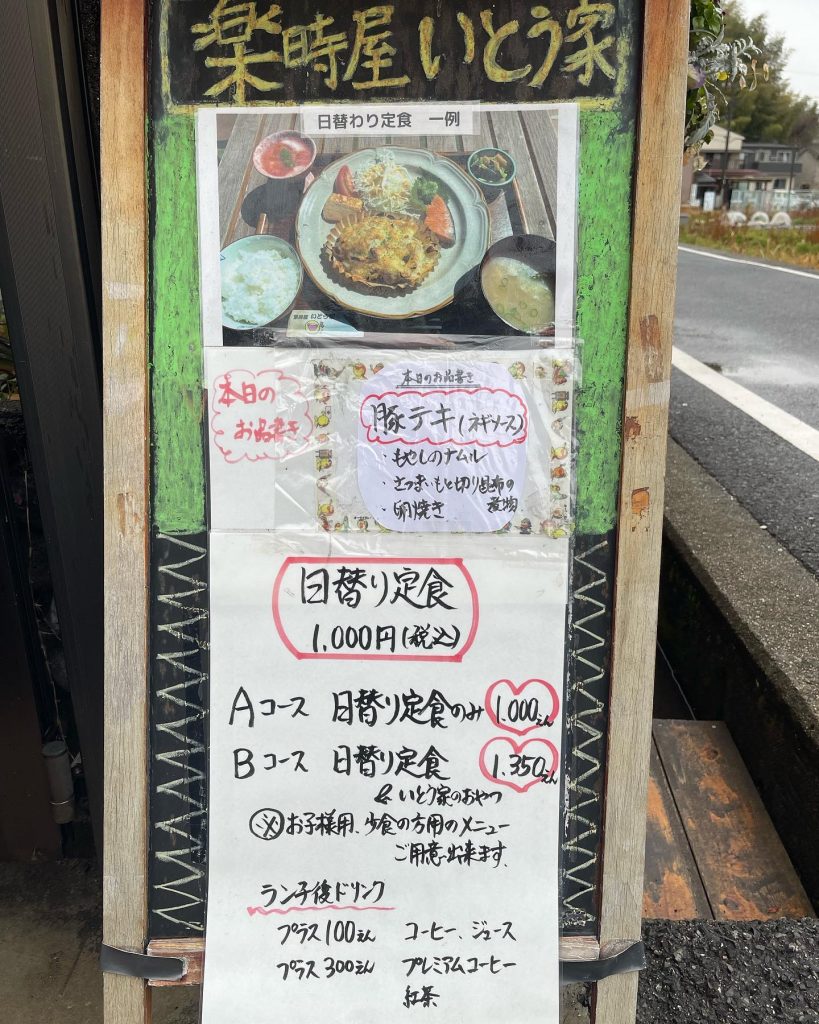 楽時屋 いとう家
日替わり定食 一例
本日の
お品書き
本日のお品書き
豚テキ(ネギソース)
・もやしのナムル
・さつまいもと切り昆布の
煮物
・卵焼き
日替り定食
1,000円(税込)
Aコース 日替り定食のみ 1.000えん
Bコース 日替り定食 1.350えん
& いとう家のおやつ
※お子様用、少食の方用のメニュー
ご用意出来ます。
ランチ後ドリンク
プラス100えん コーヒー、ジュース
プラス300えん プレミアムコーヒー
紅茶